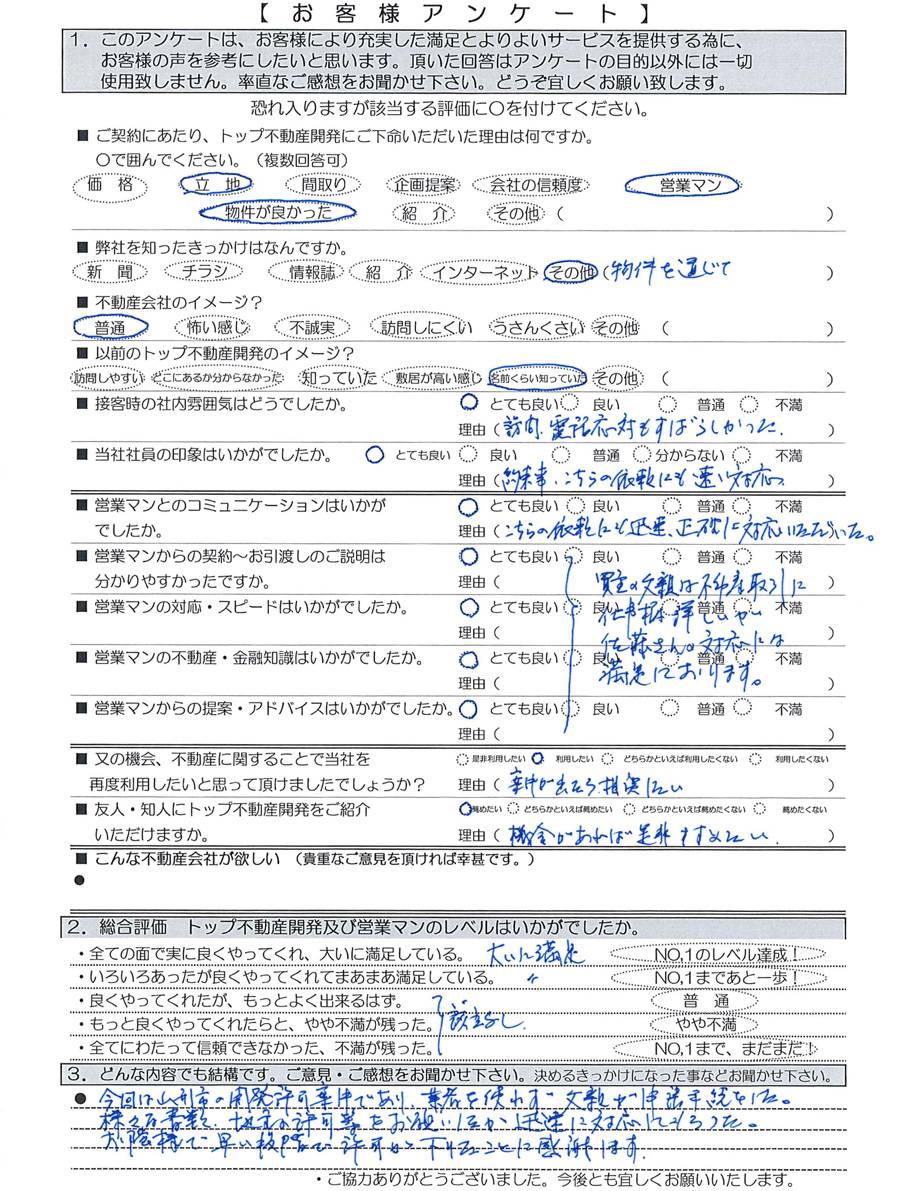 【 お 客 様 ア ン ケ ー ト 】
1．このアンケートは、お客様により充実した満足とよりよいサービスを提供する為に、
お客様の声を参考にしたいと思います。頂いた回答はアンケートの目的以外には一切
使用致しません。率直なご感想をお聞かせ下さい。どうぞ宜しくお願い致します。
恐れ入りますが該当する評価に〇を付けてください。
■ ご契約にあたり、トップ不動産開発にご下命いただいた理由は何ですか。
〇で囲んでください。（複数回答可）
価 格 立 地 間取り 企画提案 会社の信頼度 営業マン
物件が良かった 紹 介 その他 （ ）
■ 弊社を知ったきっかけはなんですか。
新 聞 チラシ 情報誌 紹 介 インターネット その他（物件を通じて ）
■ 不動産会社のイメージ？
普通 怖い感じ 不誠実 訪問しにくい うさんくさい その他 （ ）
■ 以前のトップ不動産開発のイメージ？
訪問しやすい どこにあるか分からなかった 知っていた 敷居が高い感じ 名前くらい知っていた その他 （ ）
■ 接客時の社内雰囲気はどうでしたか。 とても良い 良い 普通 不満
理由（訪問、電話応対もすばらしかった. ）
■ 当社社員の印象はいかがでしたか。 とても良い 良い 普通 分からない 不満
理由（約束事、こちらの依頼にも速い対応 ）
■ 営業マンとのコミュニケーションはいかが とても良い 良い 普通 不満
でしたか。 理由（こちらの依頼にも迅速、正確に対応いただいた。
■ 営業マンからの契約～お引渡しのご説明は とても良い 良い 普通 不満
分かりやすかったですか。 理由（ 買主の父親は不動産取引に ）
■ 営業マンの対応・スピードはいかがでしたか。 とても良い 良い 普通 不満
理由（ 詳しいが ）
■ 営業マンの不動産・金融知識はいかがでしたか。 とても良い 良い 普通 不満
佐藤さんの対応には
理由（ 満足しております。 ）
■ 営業マンからの提案・アドバイスはいかがでしたか。 とても良い 良い 普通 不満
理由（ ）
■ 又の機会、不動産に関することで当社を 是非利用したい 利用したい どちらかといえば利用したくない 利用したくない
再度利用したいと思って頂けましたでしょうか？ 理由（案件が出たら相談したい ）
■ 友人・知人にトップ不動産開発をご紹介 薦めたい どちらかといえば薦めたい どちらかといえば薦めたくない 薦めたくない
いただけますか。 理由（機会があれば是非すすめたい. ）
■ こんな不動産会社が欲しい （貴重なご意見を頂ければ幸甚です。）
●
2．総合評価 トップ不動産開発及び営業マンのレベルはいかがでしたか。
・全ての面で実に良くやってくれ、大いに満足している。 大いに満足 NO,1のレベル達成！
・いろいろあったが良くやってくれてまあまあ満足している。 〃 NO,1まであと一歩！
・良くやってくれたが、もっとよく出来るはず。 普 通
・もっと良くやってくれたらと、やや不満が残った。 該当なし. やや不満
・全てにわたって信頼できなかった、不満が残った。 NO,1まで、まだまだ！
3．どんな内容でも結構です。ご意見・ご感想をお聞かせ下さい。決めるきっかけになった事などお聞かせ下さい。
● 今回は山形市の開発許可案件であり、業者を使わず父親が申請手続をした。
様々な書類、地主の許可等をお願いしたが迅速に対応してもらった。
お陰様で早い段階で許可が下りたことに感謝します.
・ご協力ありがとうございました。今後とも宜しくお願いいたします。